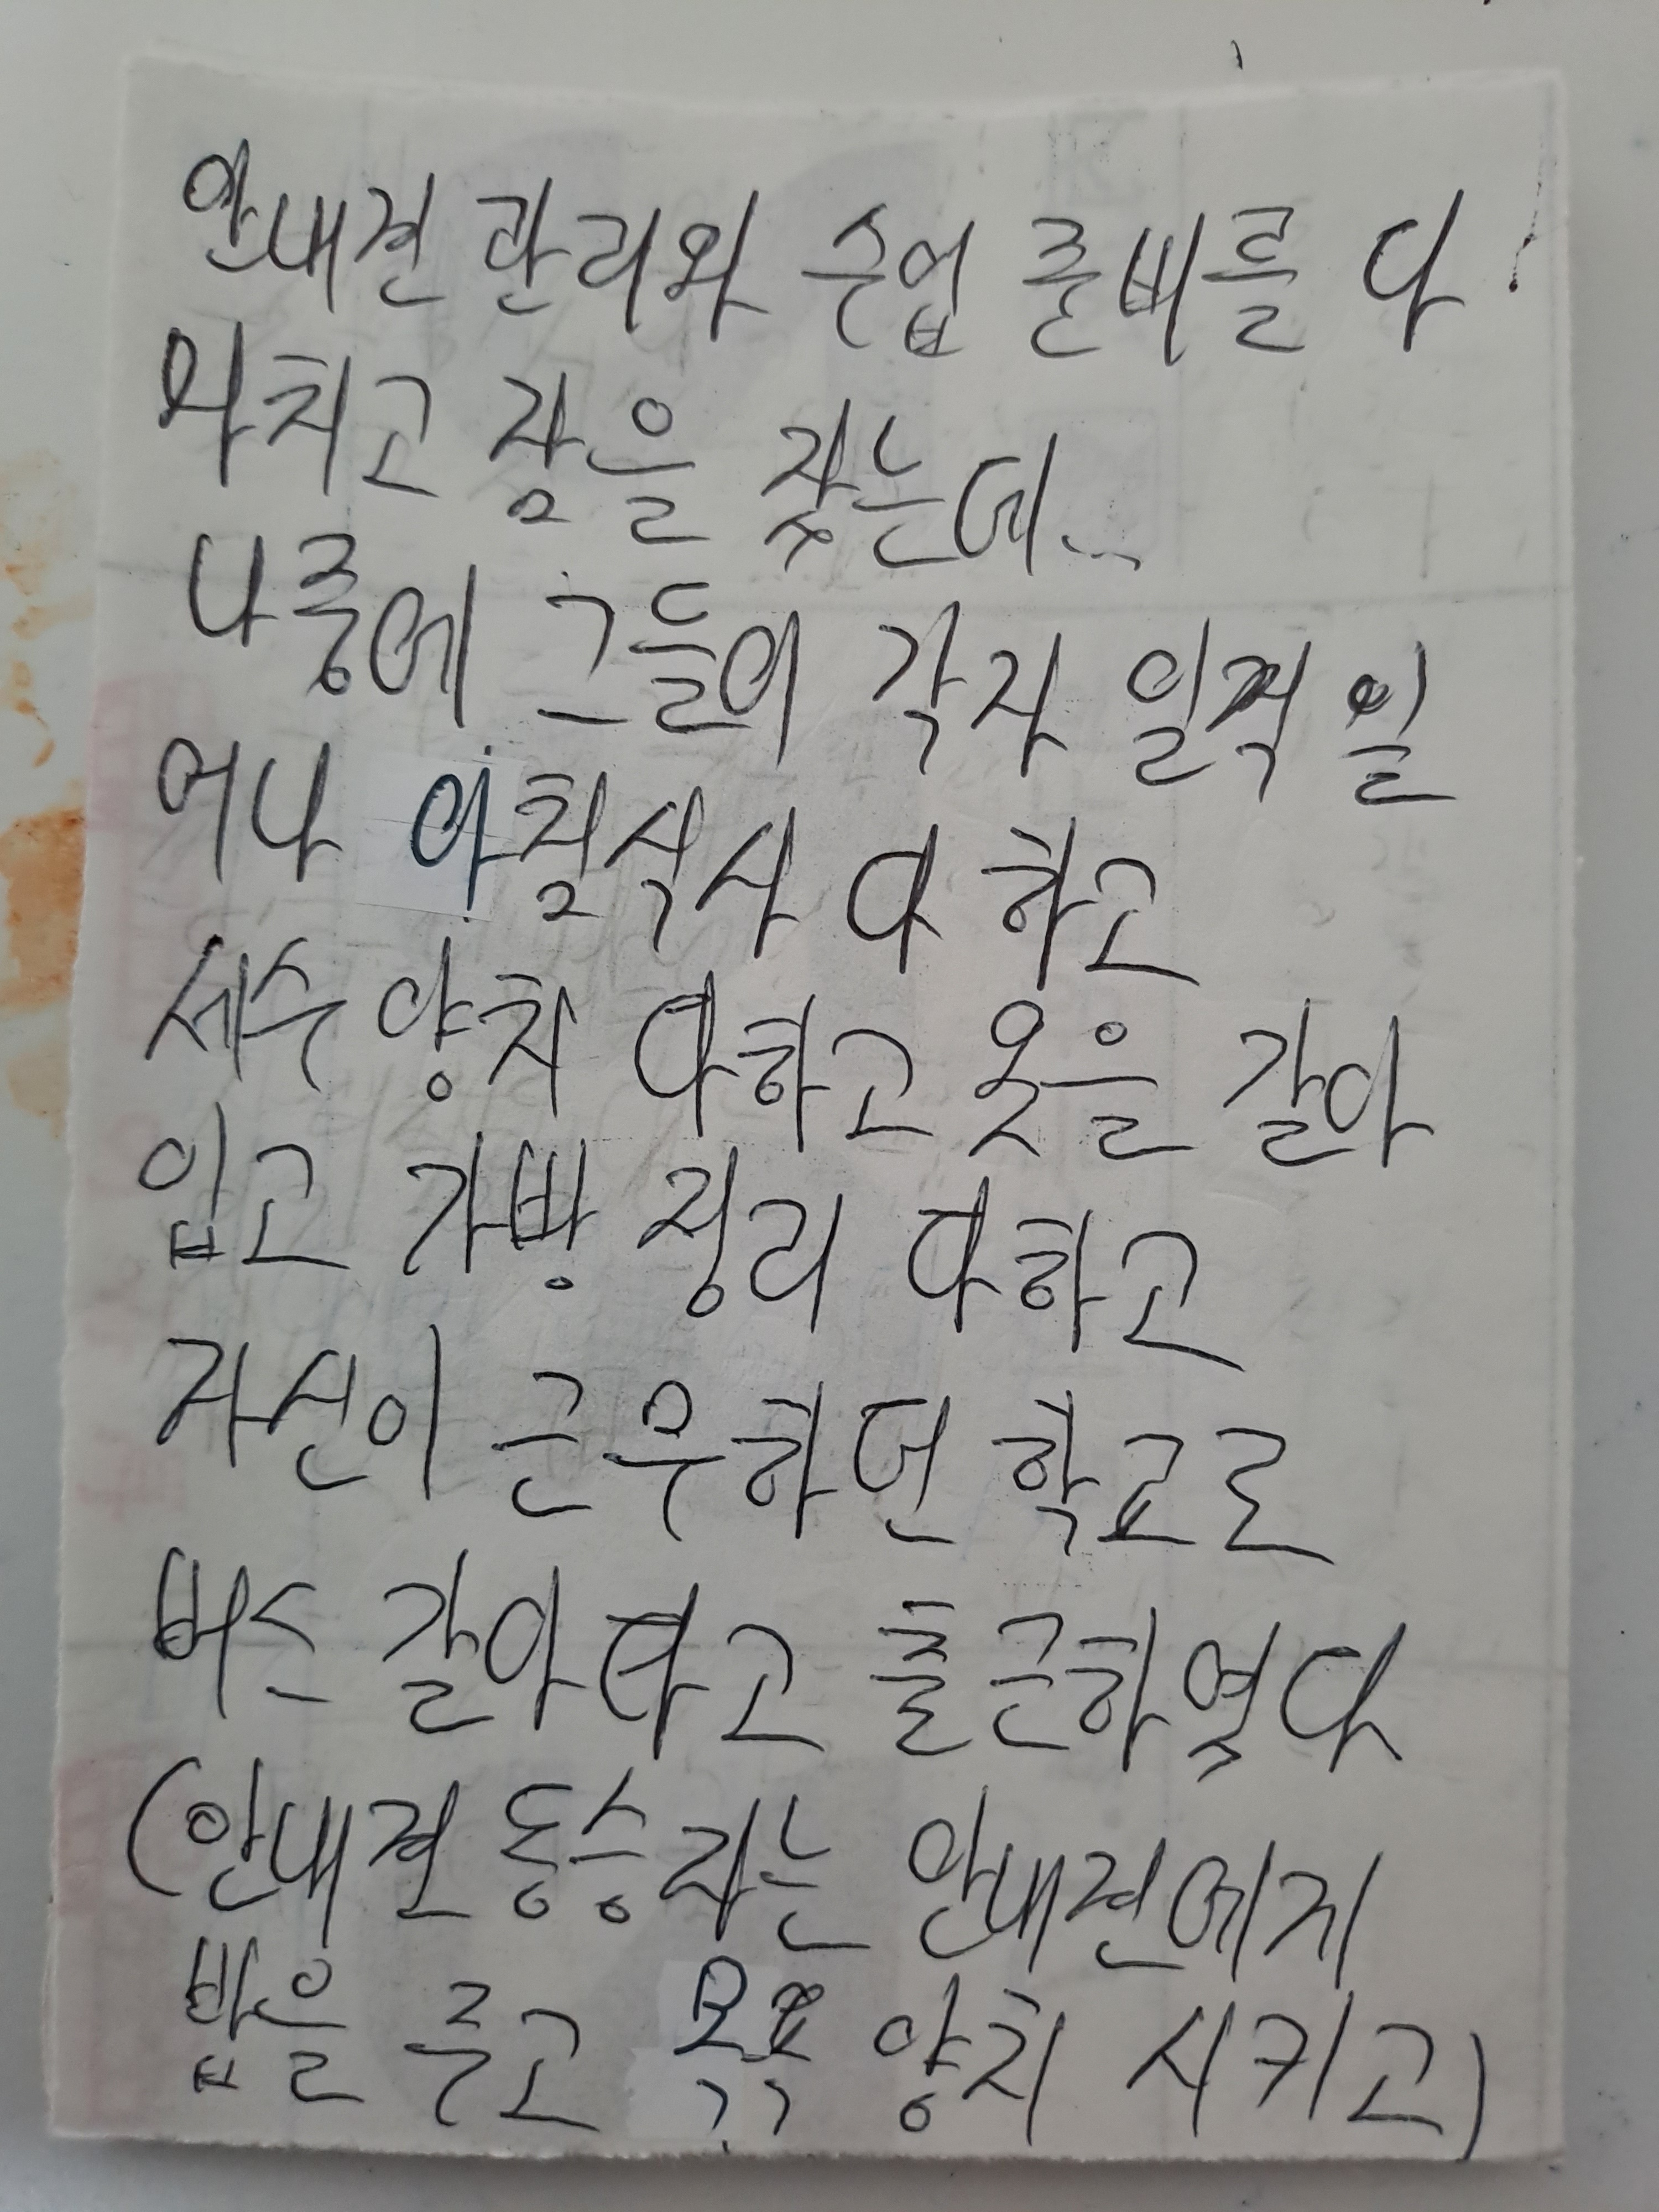 안내견 관리와 수업 준비를 다
마치고 잠을 잤는데...
나중에 그들이 각자 일찍 일
어나 아침식사 다 하고
세수 양치 다하고 옷을 갈아
입고 가방 정리 다하고
자신이 근무하던 학교로
버스 갈아타고 출근하였다
(안내견 동승자는 안내견에게
밥을 주고 목욕 양치 시키고)